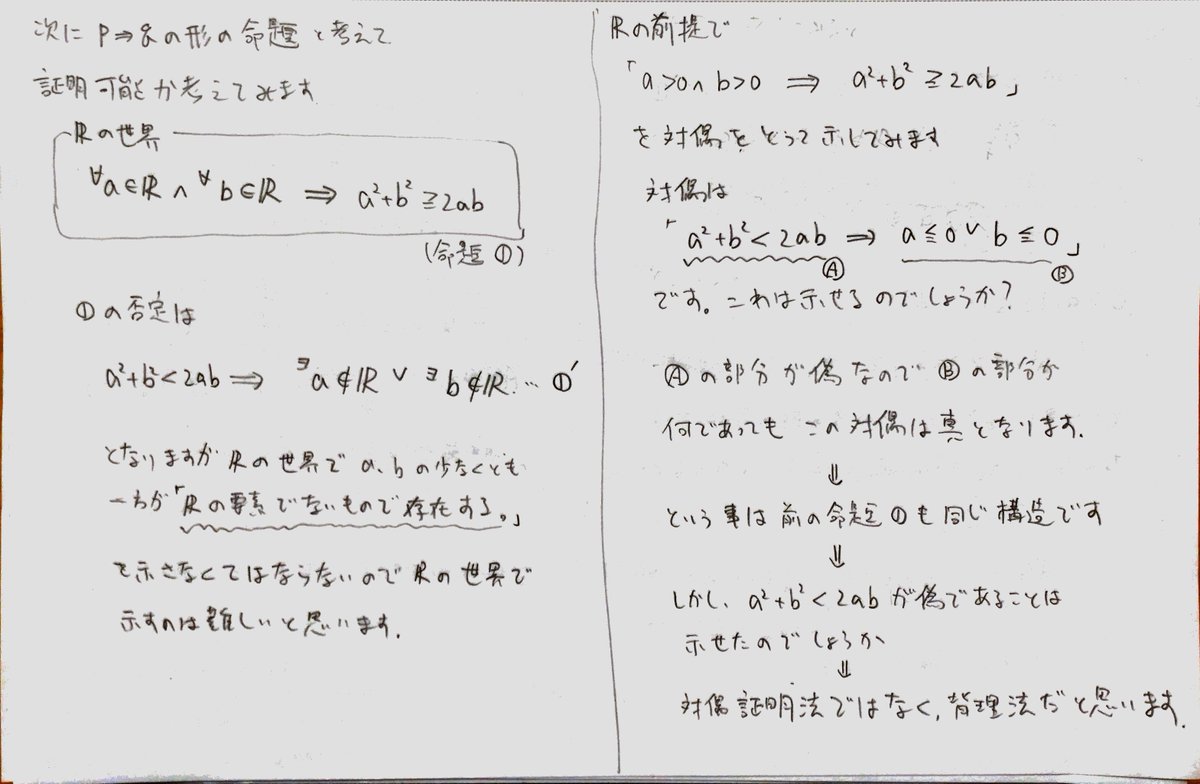 次に P⇒qの形の命題 と考えて
証明可能か考えてみます
Rの世界
∀a∈ℝ ∧ ∀b∈ℝ ⇒ a²+b²≧2ab
(命題①)
①の否定は
a²+b²<2ab ⇒ ∃a∉ℝ ∨ ∃b∉ℝ … ①′
となりますが ℝの世界で a、bの少なくとも
一方が「ℝの要素でないもので存在する。」
を示さなくてはならないので ℝの世界で
示すのは難しいと思います.
ℝの前提で
「a>0∧b>0 ⇒ a²+b²≧2ab」
を対偶をとって示してみます
対偶は
「a²+b²<2ab ⇒ a≦0∨b≦0」
Ⓐ Ⓑ
です。これは示せるのでしょうか?
Ⓐの部分が偽なのでⒷの部分が
何であっても この対偶は真となります.
⇓
という事は前の命題①も同じ構造です
⇓
しかし、a²+b²<2abが偽であることは
示せたのでしょうか
⇓
対偶証明法ではなく,背理法だと思います.